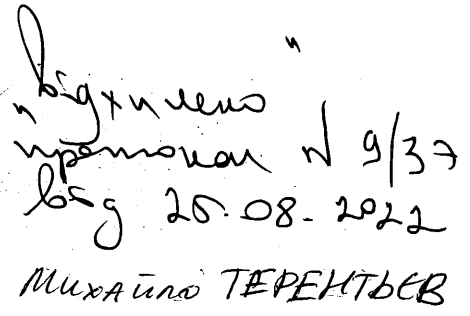 "Відхилено"
протокол № 9/37
від 25.08.2022
Михайло ТЕРЕНТЬЄВ